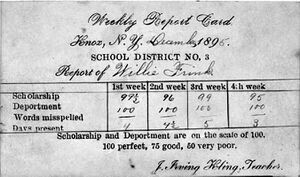 Weekly Report Card.
Knox, N. Y. Decemb 1896.
SCHOOL DISTRICT NO. 3
Report of Willie Frink
1st week 2nd week 3rd week 4th week
Scholarship 97½ 96 99 95
Deportment 100 100 100 100
Words misspelled
Days present 4 4½ 5 3
Scholarship and Deportment are on the scale of 100.
100 perfect, 75 good, 50 very poor.
J. Irving Kling, Teacher.